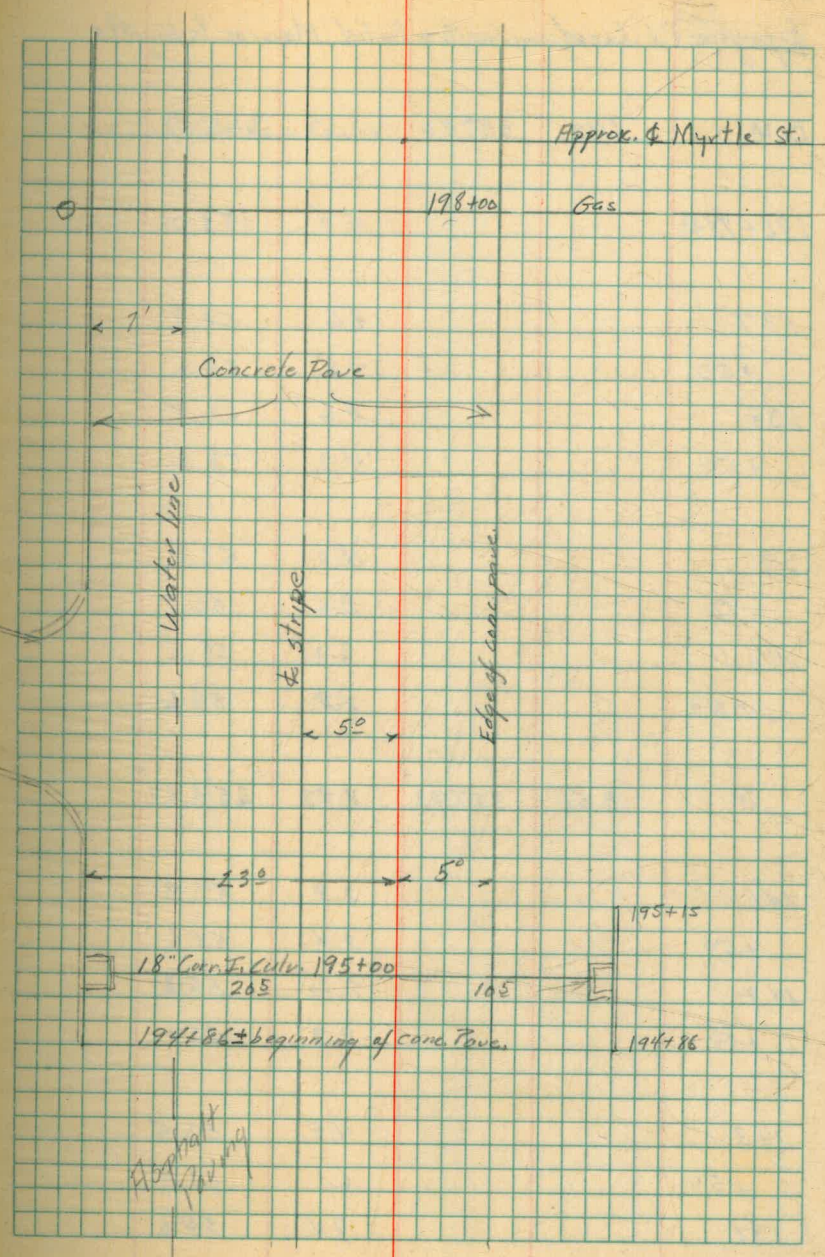 Approx. ℄ Myrtle St.
198+00 Gas
7'
Concrete Pave
Water line
℄ stripe
Edge of conc. pave.
5º
23º 5º
195+15
18" Corr. I. Culv. 195+00
20⁵ 10⁵
194+86± beginning of conc. Pave.
194+86
Asphalt
Paving